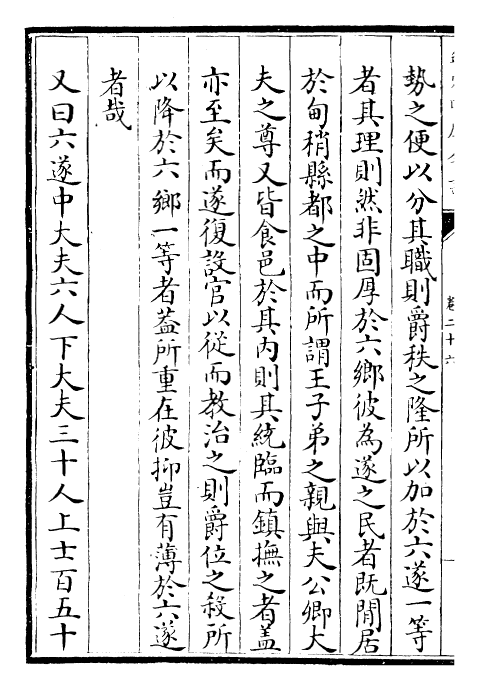 勢之便以分其職則爵秩之隆所以加於六遂一等
者其理則然非固厚於六鄉彼為遂之民者既閒居
於甸稍縣都之中而所謂王子弟之親與夫公卿大
夫之尊又皆食邑於其內則其統臨而鎮撫之者盖
亦至矣而遂復設官以從而教治之則爵位之殺所
以降於六鄉一等者葢所重在彼抑豈有薄於六遂
者哉
又曰六遂中大夫六人下大夫三十人上士百五十
卷二十六